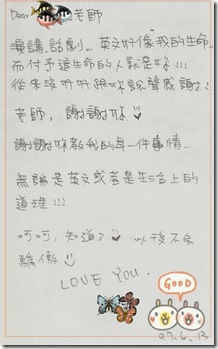 Dear 老師
演講、話劇… 英文好像我的生命…
而付予這生命的人就是妳!!!
從來沒好好跟妳說聲感謝!
老師, 謝謝妳
謝謝妳教我的每一件事情…
無論是英文或者是生活上的
道理!!!
呵呵, 知道了 以後不會
驕傲
LOVE YOU.
GOOD
97. 6. 13